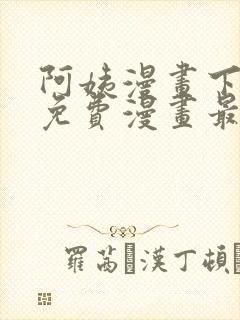 阿姨漫畫下
免費漫畫最
羅茜·漢丁頓